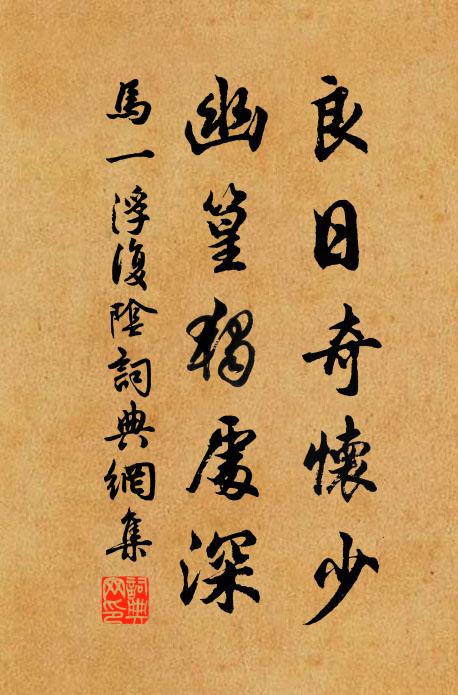 良日奇懷少
幽篁獨處深
馬一浮復陰詞典網集
詞典網印